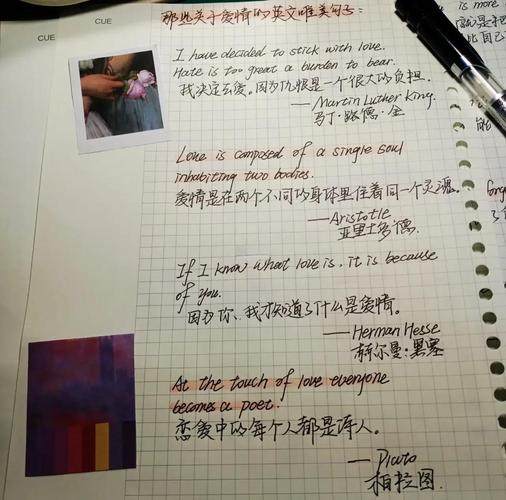 CUE
CUE
那些关于爱情的英文唯美句子：
I have decided to stick with love.
Hate is too great a burden to bear.
我决定去爱。因为仇恨是一个很大的负担。
—Martin Luther King.
马丁·路德·金
Love is composed of a single soul
inhabiting two bodies.
爱情是在两个不同的身体里住着同一个灵魂。
—Aristotle
亚里士多德.
If I know what love is, it is because
of you.
因为你、我才知道了什么是爱情。
—Herman Hesse
赫尔曼·黑塞
At the touch of love everyone
becomes a poet.
恋爱中的每个人都是诗人。
—Plato
柏拉图.
is more